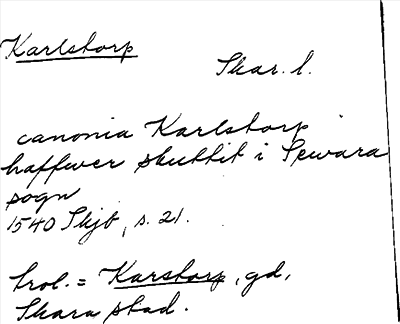 Karlstorp
Skar. l.
canonia Karlstorp
haffwer skuttit i Sewara
sogn
1540 Skjb, s. 21.
trol. = Karstorp, gd,
Skara stad.